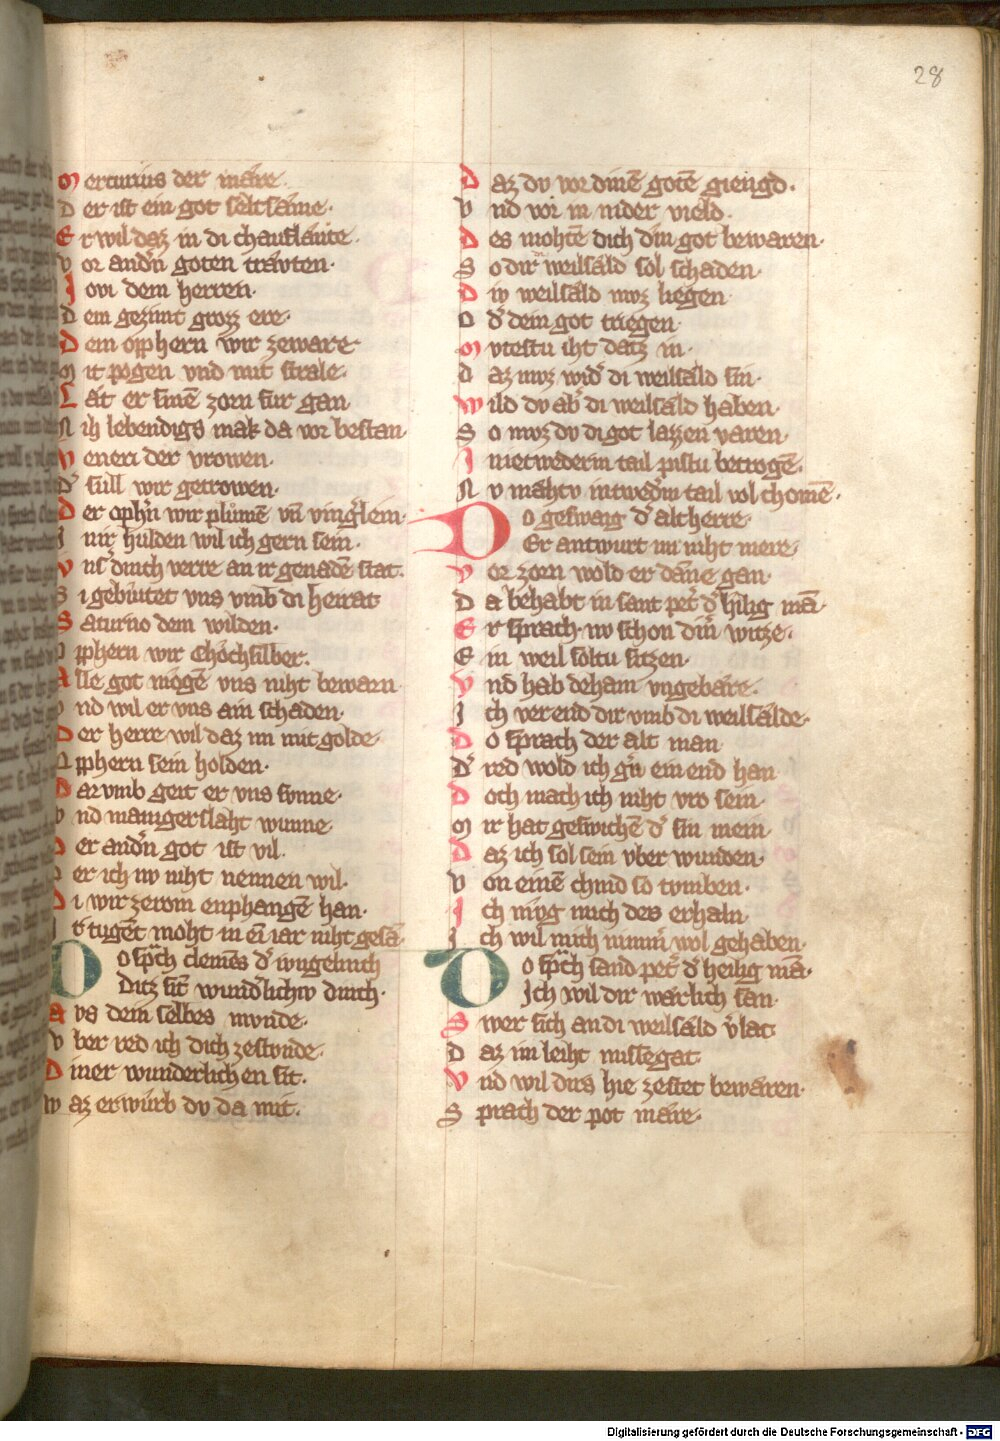 28
Mercurius der mære
Der ist ein got seltsæine·
Er wil daz in di chauflæute·
Vor andern goten trævten·
Iovi dem herren·
Dem gezimt grozz ere·
Dem opphern wir zeware
Mit pogen vnd mit strale·
Lat er sinē zorn fur gan
Nih lebendigs mak da vor bestan·
Veneri der vrowen·
D͛ sull wir getrowen·
Der oph͛n wir plůmē vn̄ ving͛lein·
In ir hulden wil ich gern sein·
Vns dunch verre an ir genadē stat·
Si gebiutet vns vmb di heirat
Saturno dem wilden·
Opphern wir Chôchsilber·
Alle got mogē vns niht bewarn
Vnd wil er vns ain schaden·
Der herre wil daz im mit golde·
Opphern sein holden·
Darvmb geit er vns svnne·
Vnd maniger slaht wunne
Der and͛n got ist vil·
Der ich nv niht nennen wil·
Di wir ze rom enphangē han·
Ir tugēt moht in ei iar niht gesā·
Do sp͛ch clemēs d͛ ivngelinch
Ditz sit wund͛lichiv dinch·
Avs dein selbes mvnde·
Vber red ich dich zestvnde·
Diner wunderlichen sit·
Waz erwurb dv da mit·
Daz dv vor dinē gotē giengd·
Vnd vor in nider vield·
Des mohtē dich din got bewaren·
So dir weilsæld sol schaden·
Div weilsæld mvz liegen
Od͛ dein got triegen·
Mvtestu iht datz in·
Daz mvz wid͛ di weilsæld sin·
Wild dv ab͛ di weilsæld haben·
So mvz dv di got lazzen varen·
In ietwederm tail pistu betrogē·
Nv mahtv intwed͛m tail vol chomē·
Do geswaig d͛ alt herre·
Er antwurt im niht mere·
Vor zorn wold er dāne gan·
Da behabt in sant pet͛ d͛ hilig mā·
Er sprach nv schon din͛ witze·
Ein weil soltu sitzen·
Vnd hab dehain vngebære·
Ich verend dir vmb di weilsælde·
Do sprach der alt man
D͛ red wold ich g͛n ein end han
Doch mach ich niht vro sein·
Mir hat geswichē d͛ sin mein·
Daz ich sol sein vber wunden·
Von einē chind so tvmben·
Ich mvg mich des erhaln
Ich wil mich nim͛m wol gehaben·
Do sp͛ch sand pet͛ d͛ heilig mā·
Ich wil dir wærlich san·
Swer sich an di weilsæld v͛lat
Daz im leiht missegat
Vnd wil dirs hie zestet bewæren·
Sprach der pot mære·
Digitalisierung gefördert durch die Deutsche Forschungsgemeinschaft - DFG